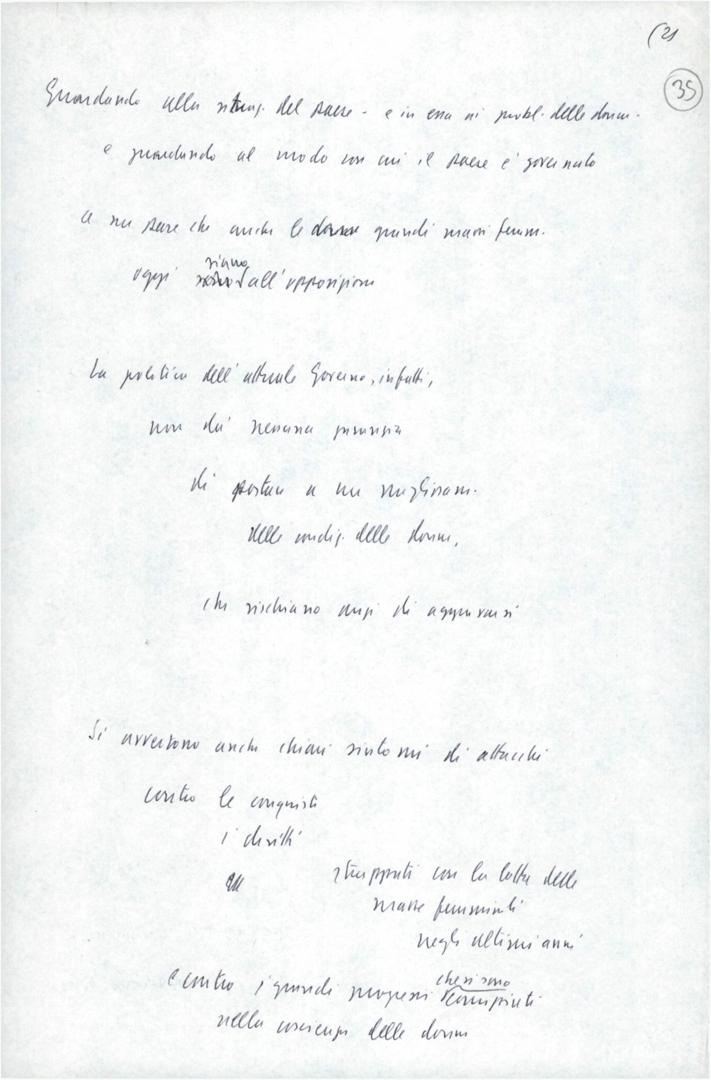 (21
35
Guardando alla situaz. del paese - e in essa ai probl. delle donne -
e guardando al modo con cui il paese è governato
a noi pare che anche le grandi masse femm.
oggi siano all'opposizione
La politica dell'attuale Governo, infatti,
non dà nessuna garanzia
di portare a un miglioram.
delle condiz. delle donne,
che rischiano anzi di aggravarsi
Si avvertono anche chiari sintomi di attacchi
contro le conquiste
i diritti
strappati con la lotta delle
masse femminili
negli ultimi anni
e contro i grandi progressi che si sono compiuti
nella coscienza delle donne